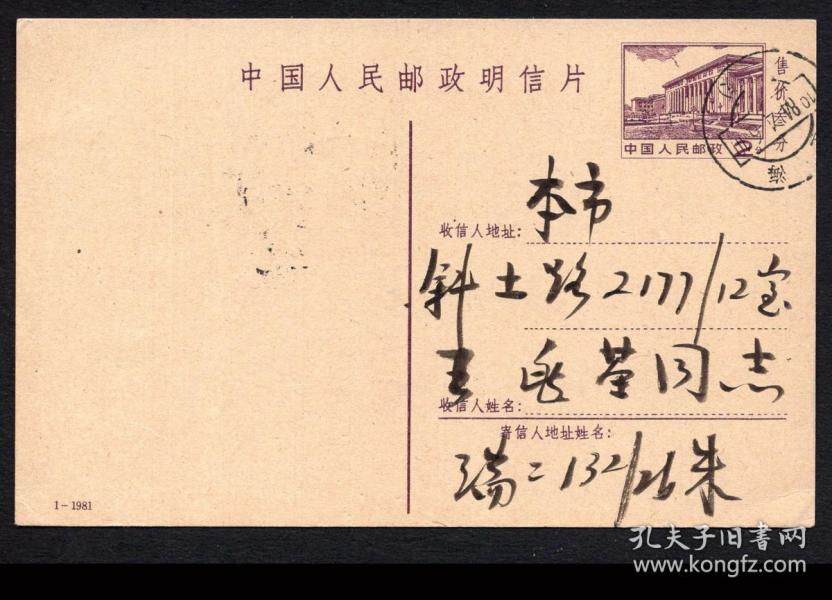 中国人民邮政明信片
售价叁分
中国人民邮政
海
收信人地址:
本市
斜土路2177/12室
王
同志
收信人姓名:
寄信人地址姓名:
瑞二132/26朱
1-1981
孔夫子旧书网
www.kongfz.com